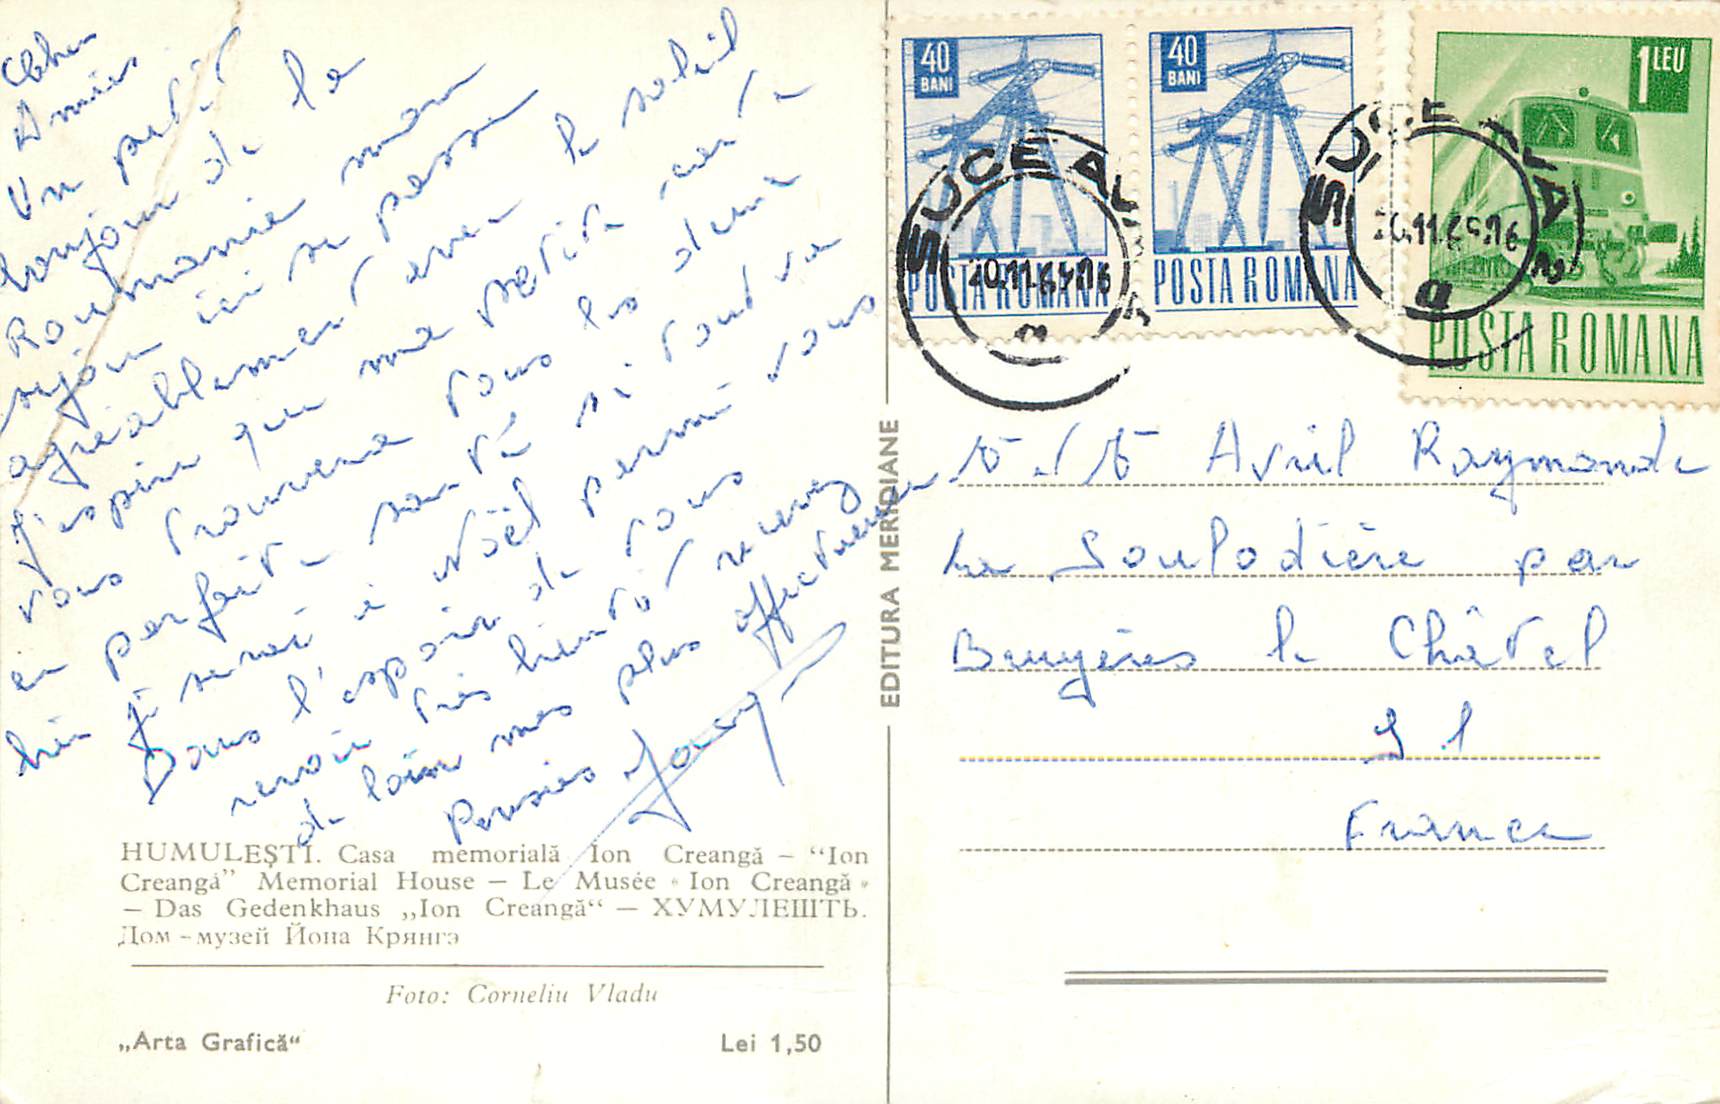 Chers
Amis
Un petit
bonjour de la
Roumanie mon
séjour ici se passe
agréablement avec le soleil
J'espère que ma petite carte
vous trouvera tous les deux
en parfaite santé si tout va
bien je serai à Noël parmi vous
Dans l'espoir de vous
revoir très bientôt recevez
de loin mes plus affectueuses
Pensées
HUMULEȘTI. Casa memorială Ion Creangă – “Ion
Creangă” Memorial House – Le Musée « Ion Creangă »
– Das Gedenkhaus „Ion Creangă“ – ХУМУЛЕШТЬ.
Дом-музей Йона Крянгэ
Foto: Corneliu Vladu
„Arta Grafică“ Lei 1,50
EDITURA MERIDIANE
40 BANI
POSTA ROMANA
40 BANI
POSTA ROMANA
1 LEU
POSTA ROMANA
SUCEAVA
20.11.69.16
SUCEAVA
20.11.69.16
Avril Raymonde
La Soulodière par
Bruyères le Châtel
91
France